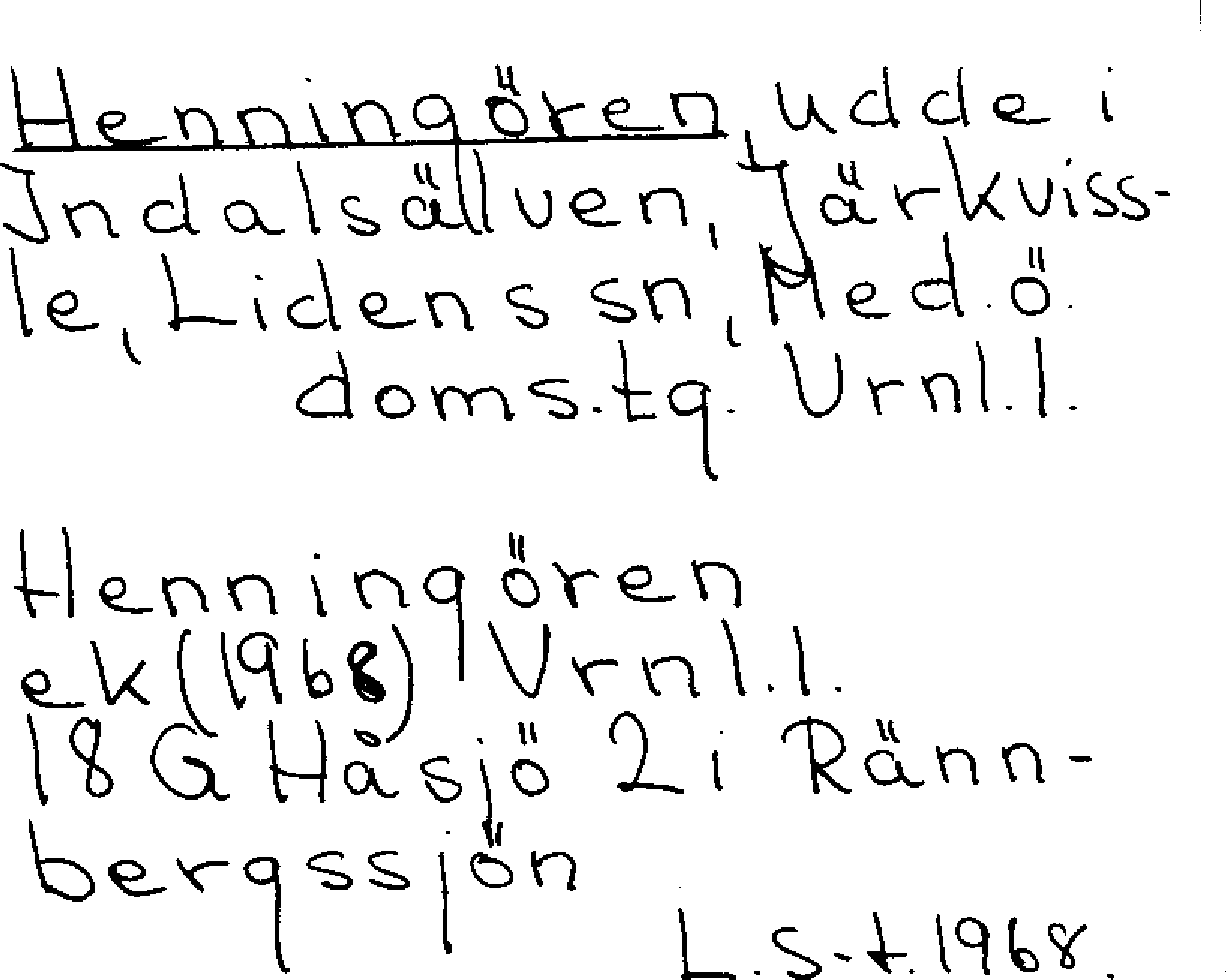 Henningören, udde i
Indalsällven, Järkviss-
le, Lidens sn, Med.ö.
doms.tg. Vrnl.l.
Henningören
ek (1968) Vrnl.l.
18 G Håsjö 2 i Ränn-
bergssjön
L.S-t. 1968.